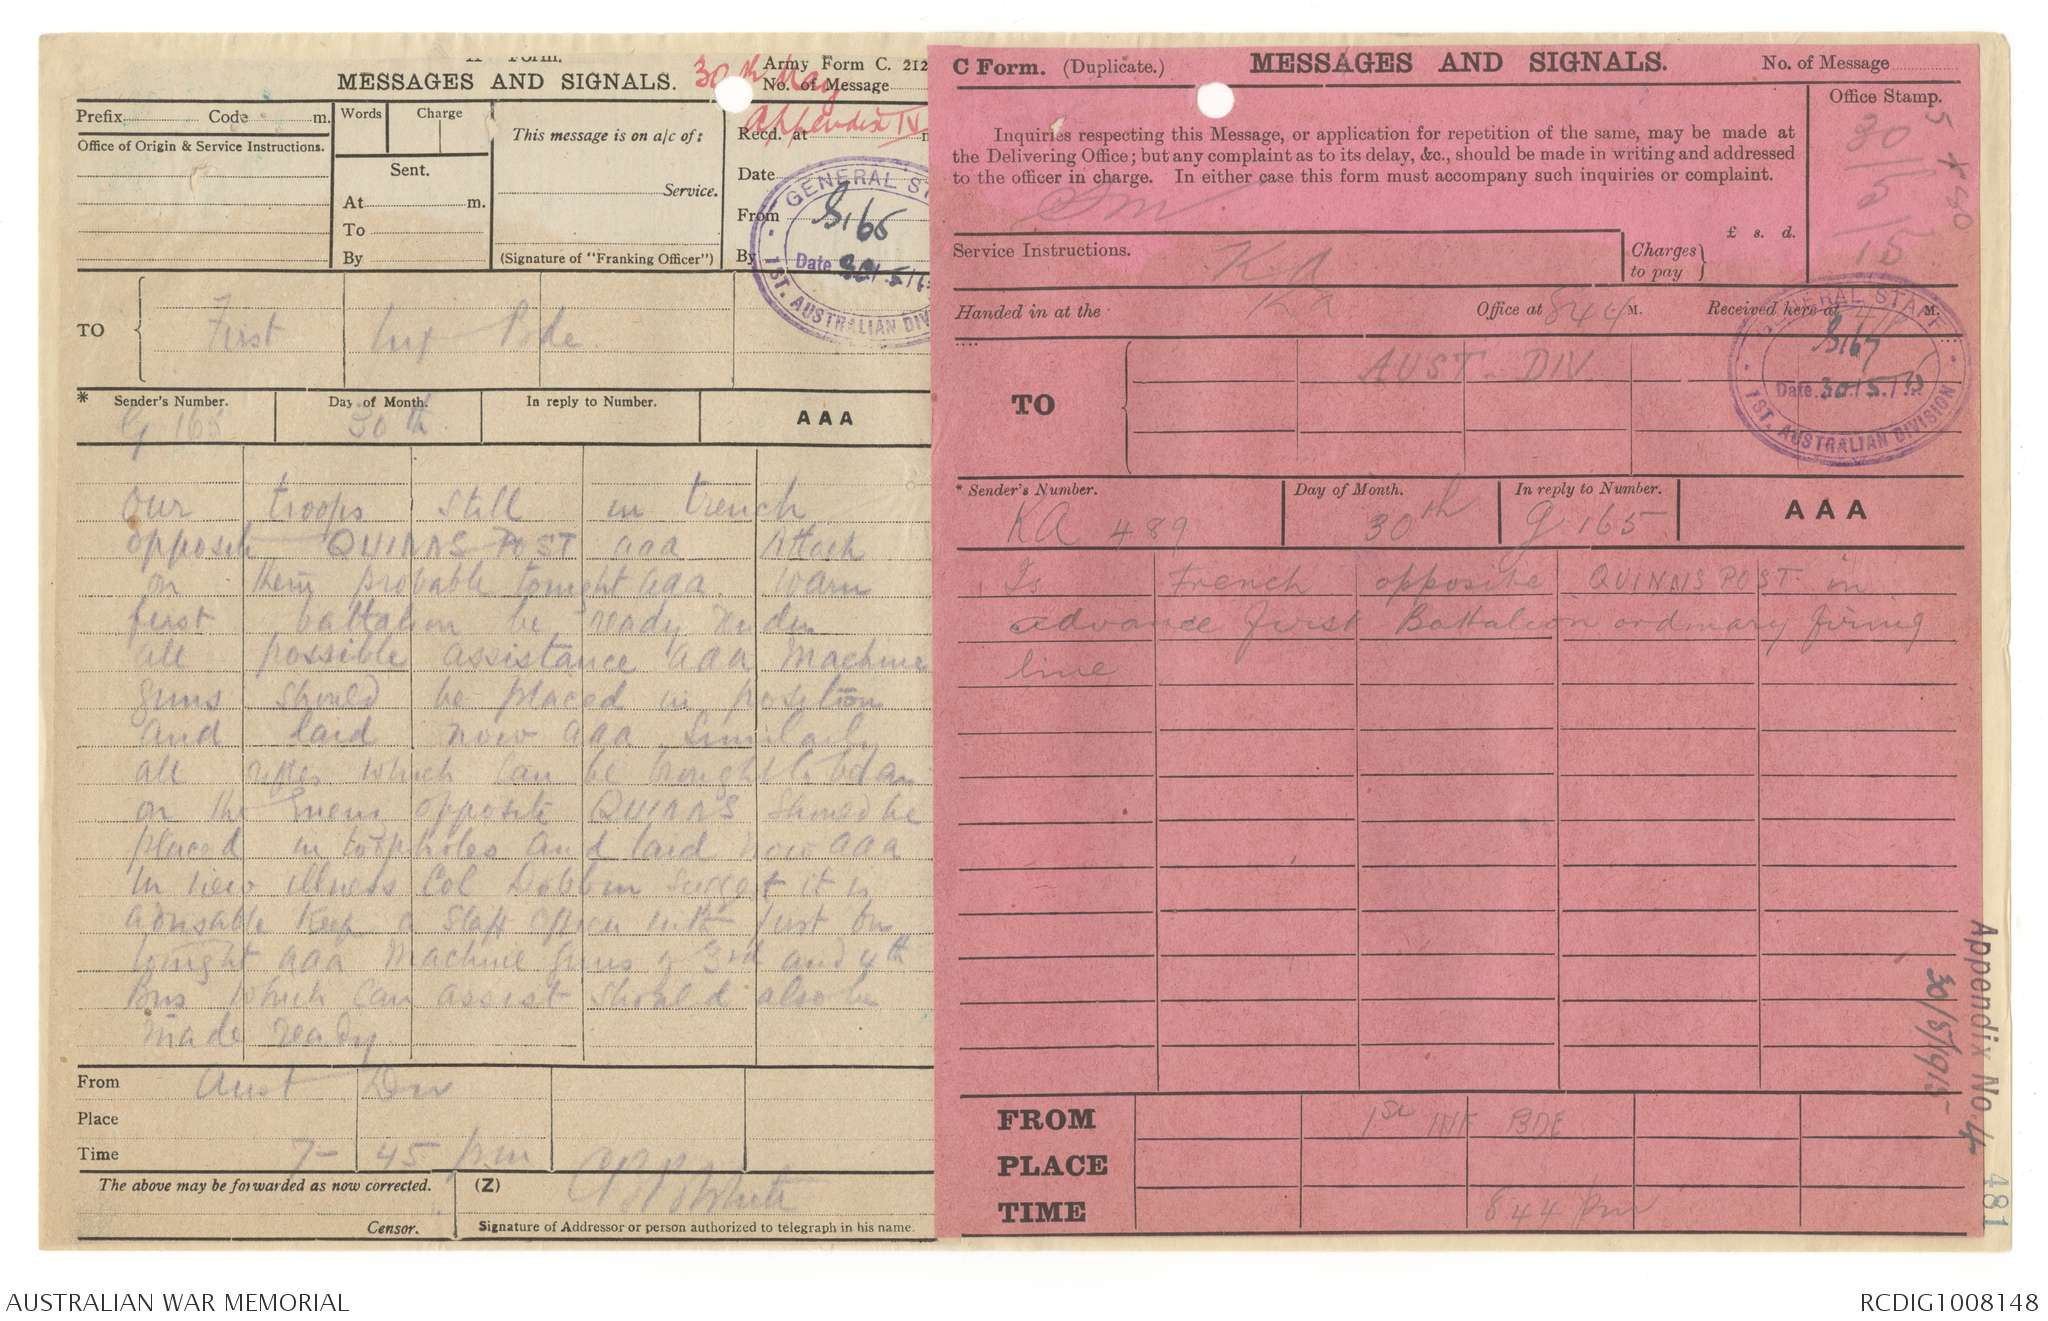 "A" Form.
Army Form C. 212
MESSAGES AND SIGNALS.
30th May
No. of Message
Appendix IV
Prefix Code m.
Words Charge
This message is on a/c of:
Recd. at
Office of Origin & Service Instructions.
Sent.
At m.
To
By
Service.
(Signature of "Franking Officer")
Date
From
By
GENERAL STA
G165
Date 30/5/15
1ST. AUSTRALIAN DIV
TO
First Inf Bde
* Sender's Number.
Day of Month.
In reply to Number.
AAA
G 165
30th
Our troops still in trench
opposite QUINNS POST aaa Attack
on them probable tonight aaa Warn
first battalion be ready render
all possible assistance aaa Machine
guns should be placed in position
and laid now aaa Similarly
all rifles which can be brought to bear
on the enemy opposite QUINNS should be
placed in loopholes and laid now aaa
In view illness Col Dobbin suggest it is
advisable keep a staff officer with first Bn
tonight aaa Machine guns of 3rd and 4th
Bns which can assist should also be
made ready
From Aust Div
Place
Time 7-45 pm
The above may be forwarded as now corrected.
(Z)
CBB White
Censor.
Signature of Addressor or person authorized to telegraph in his name.
C Form. (Duplicate.)
MESSAGES AND SIGNALS.
No. of Message
Office Stamp.
30
5
15
Inquiries respecting this Message, or application for repetition of the same, may be made at
the Delivering Office; but any complaint as to its delay, &c., should be made in writing and addressed
to the officer in charge. In either case this form must accompany such inquiries or complaint.
£ s. d.
Service Instructions.
KA
Charges to pay
Handed in at the KA Office at 844 M. Received here at M.
GENERAL STAFF
G167
Date 30/5/15
1ST. AUSTRALIAN DIVISION
TO
AUST. DIV.
* Sender's Number.
Day of Month.
In reply to Number.
AAA
KA 489
30th
G 165
Is trench opposite QUINNS POST in
advance first Battalion ordinary firing
line
FROM 1st INF BDE
PLACE
TIME 844 pm
Appendix No. 4
30/5/1915
481
AUSTRALIAN WAR MEMORIAL
RCDIG1008148